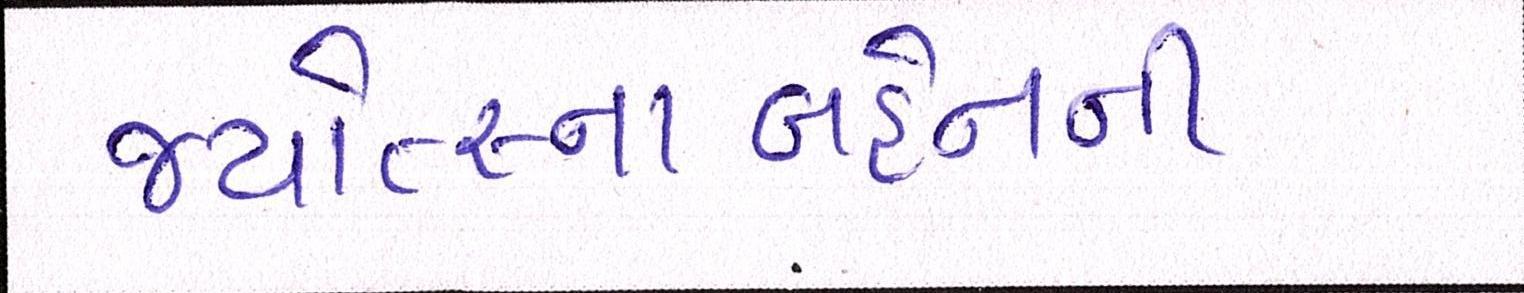 જ્યોત્સ્નાબહેનની